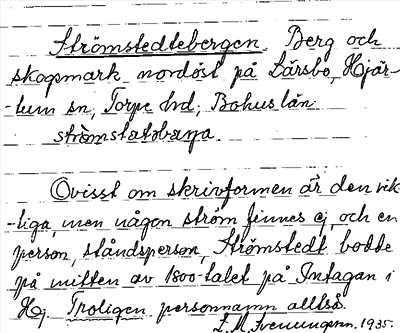 Strömstedtebergen. Berg och
skogsmark nordöst på Lårsbo, Hjär-
-tum sn, Torpe hd, Bohus län
strömstatsbærja.
Ovisst om skrivformen är den rik-
-tiga, men någon ström finnes ej, och en
person, ståndsperson, Strömstedt bodde
på mitten av 1800-talet på Intagan i
Hj. Troligen personnamn alltså.
1935.